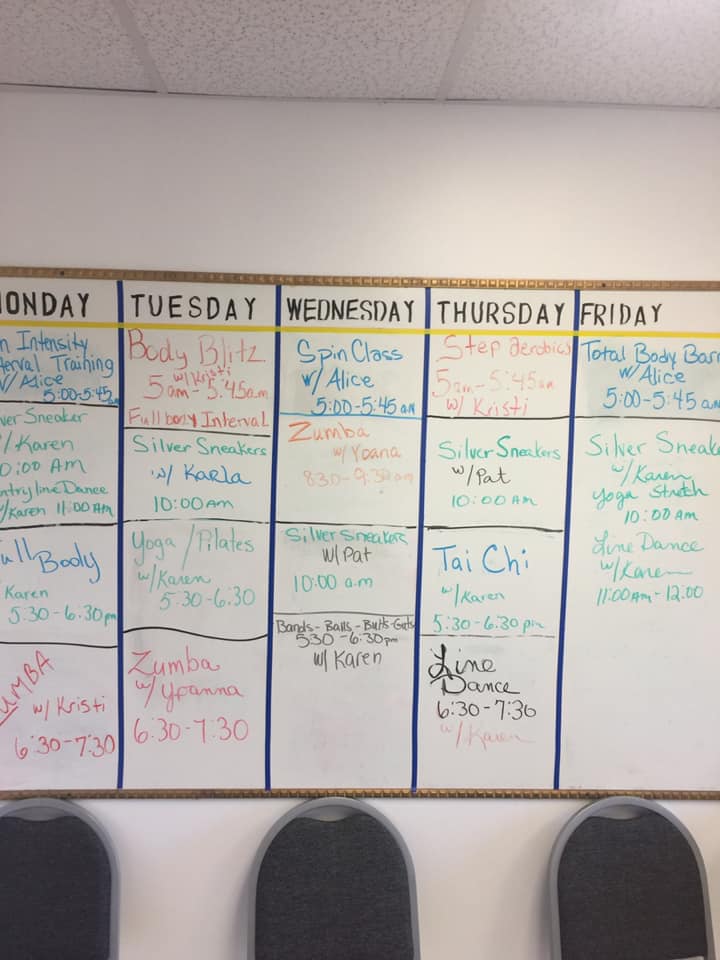 ONDAY
n Intensity
terval Training
w/ Alice
5:00-5:45am
ver Sneaker
/ Karen
0:00 AM
ntry line Dance
w/Karen 11:00 AM
ull Body
Karen
5:30-6:30pm
UMBA
w/ Kristi
6:30-7:30
TUESDAY
Body Blitz
w/ Kristi
5am-5:45am
Full body Interval
Silver Sneakers
w/ Karla
10:00 am
Yoga / Pilates
w/Karen
5:30-6:30
Zumba
w/
6:30-7:30
WEDNESDAY
Spin Class
w/ Alice
5:00-5:45 am
Zumba
w/ Yoana
8:30-9:30am
Silver Sneakers
w/ Pat
10:00 a.m
Bands-Balls-Butts-Guts
530-6:30pm
w/ Karen
THURSDAY
Step aerobics
5am-5:45am
w/ Kristi
Silver Sneakers
w/Pat
10:00 Am
Tai Chi
w/Karen
5:30-6:30 pm
Line
Dance
6:30-7:30
w/Karen
FRIDAY
Total Body Barr
w/Alice
5:00-5:45 am
Silver Sneake
w/Karen
yoga Stretch
10:00 AM
Line Dance
w/Karen
11:00am-12:00